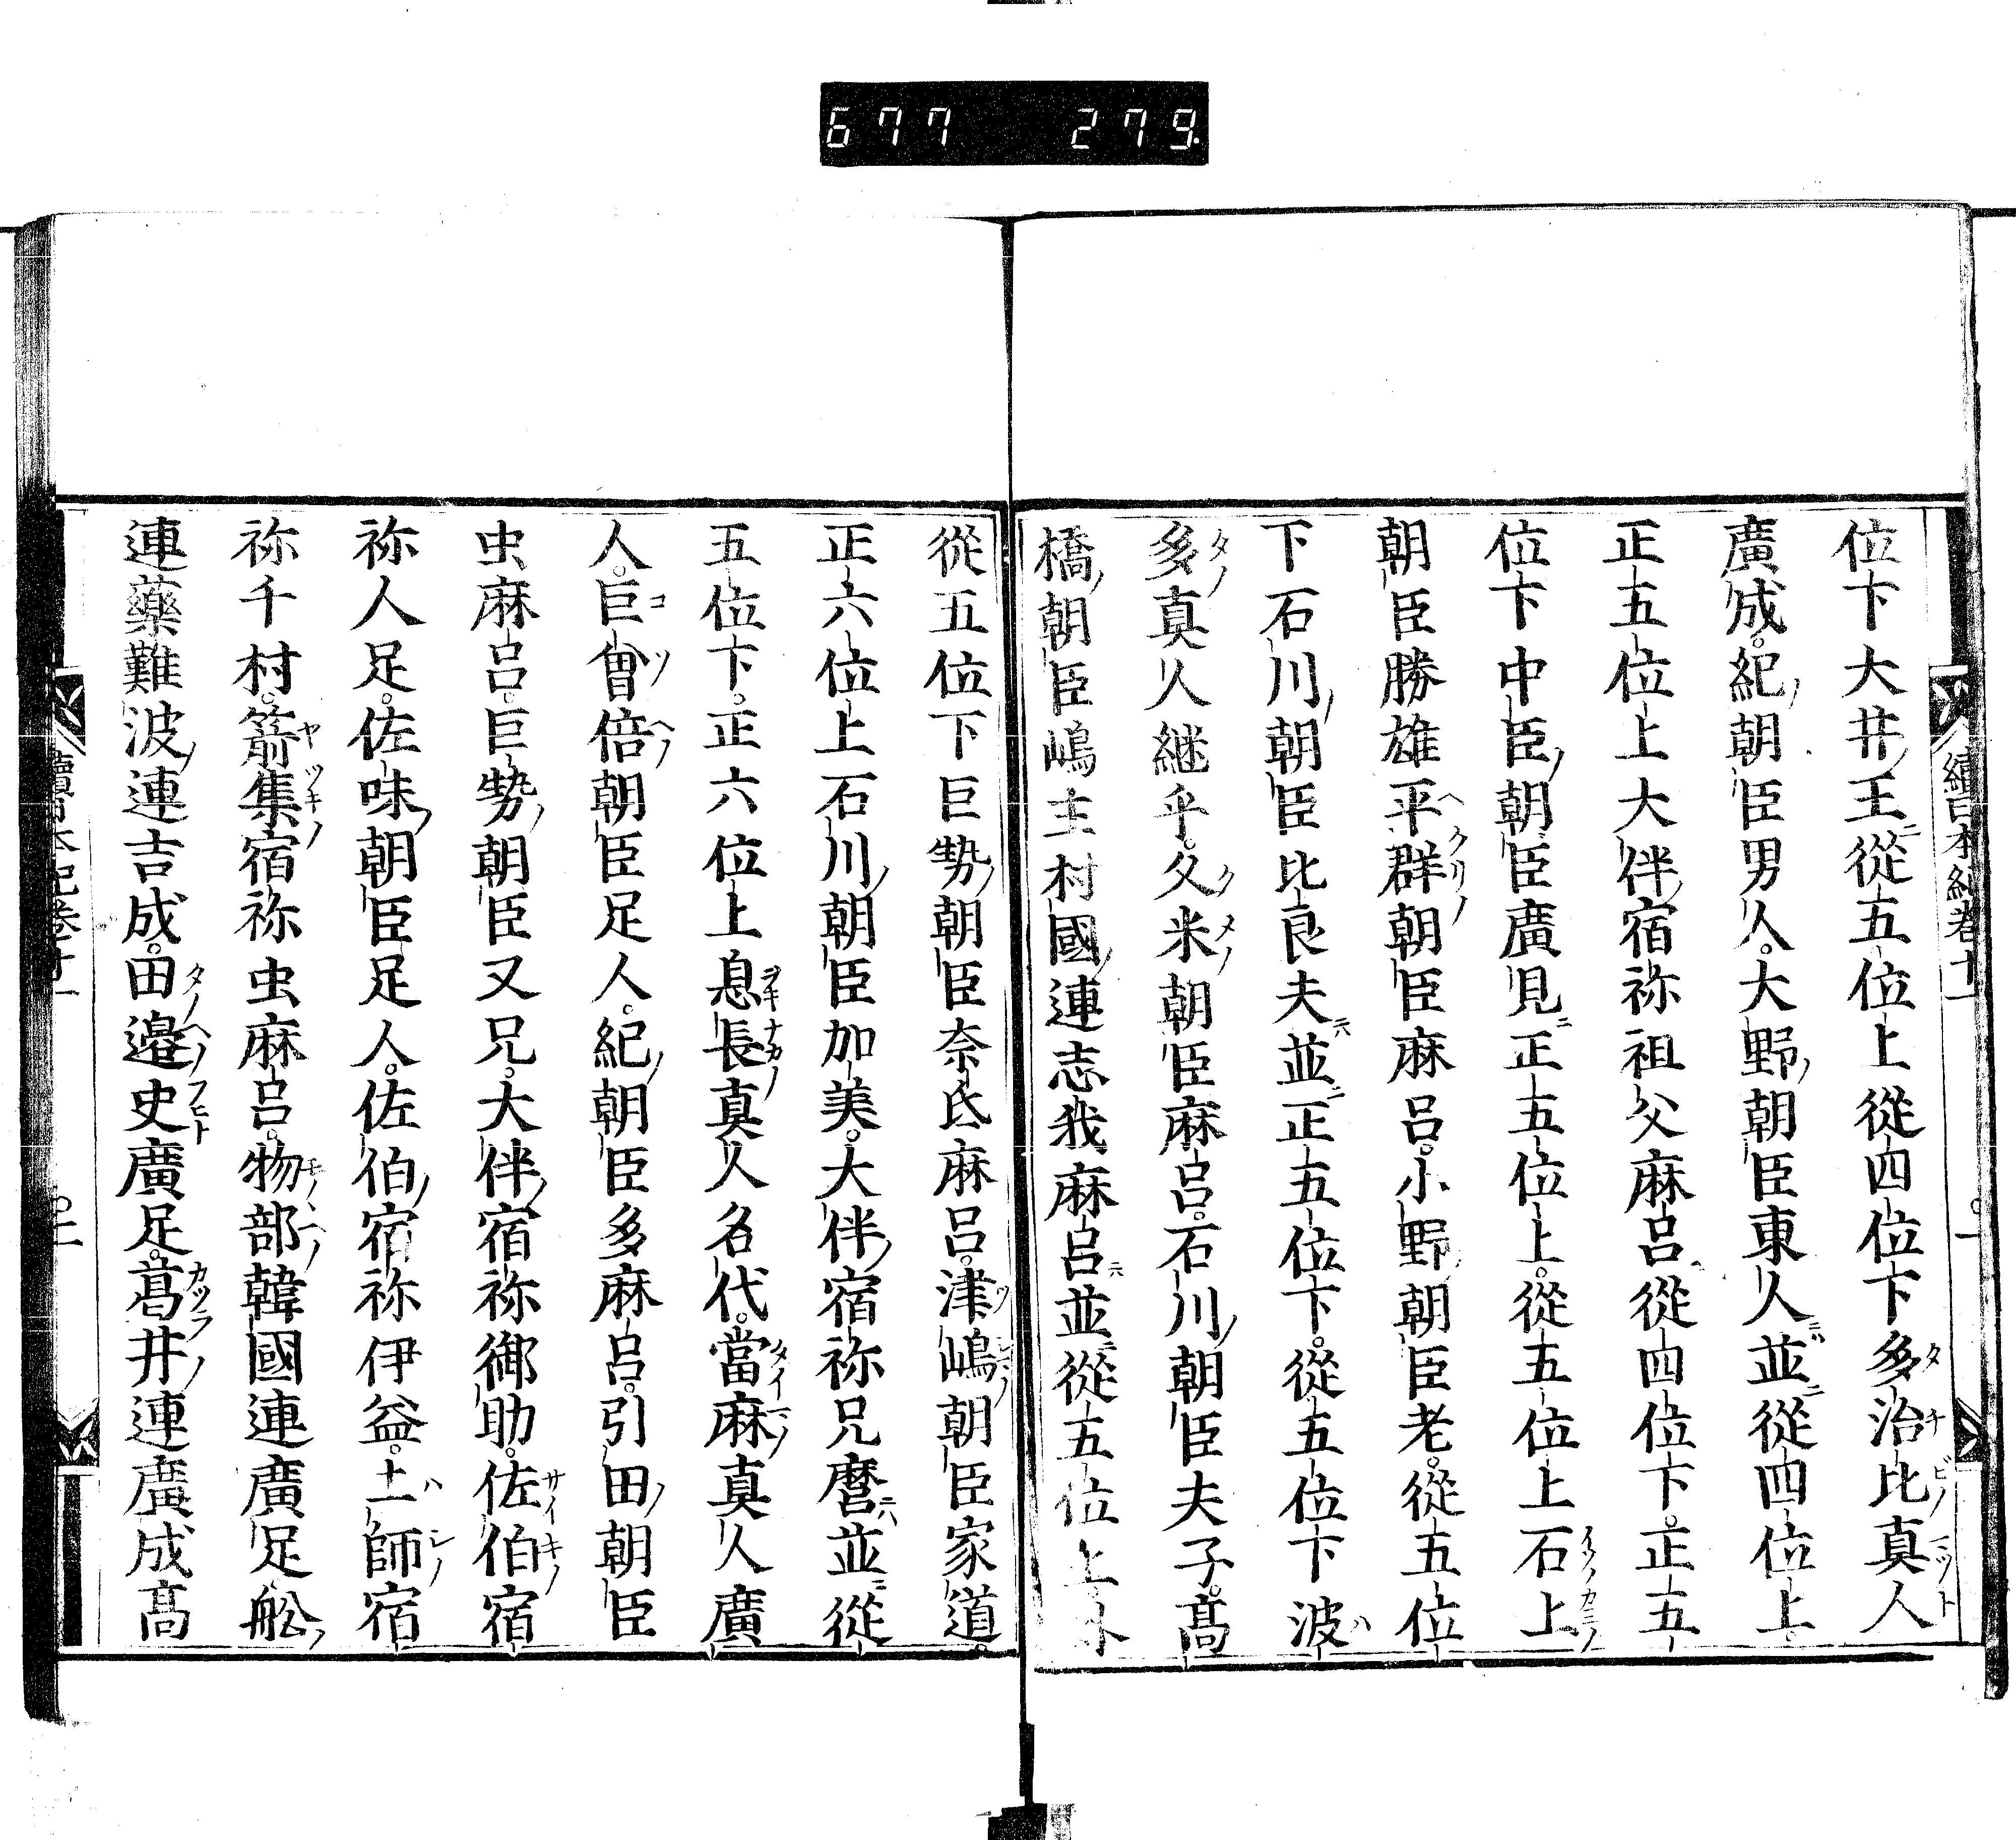 677 279.
續日本紀卷十一 〇一
位下大井王從五位上從四位下多治比真人
廣成。紀朝臣男人。大野朝臣東人並從四位上
正五位上大伴宿祢祖父麻呂從四位下。正五
位下中臣朝臣廣見正五位上。從五位上石上
朝臣勝雄平群朝臣麻呂。小野朝臣老。從五位
下石川朝臣比良夫並正五位下。從五位下波
多真人継乎。久米朝臣麻呂。石川朝臣夫子。髙
橋朝臣嶋主村國連志我麻呂並從五位上外
從五位下巨勢朝臣奈氐麻呂。津嶋朝臣家道。
正六位上石川朝臣加美。大伴宿祢兄麿並從
五位下。正六位上息長真人名代。當麻真人廣
人。巨曾倍朝臣足人。紀朝臣多麻呂。引田朝臣
虫麻呂。巨勢朝臣又兄。大伴宿祢御助。佐伯宿
祢人足。佐味朝臣足人。佐伯宿祢伊益。土師宿
祢千村。箭集宿祢虫麻呂。物部韓國連廣足舩
連藥難波連吉成。田邉史廣足。葛井連廣成髙
續日本紀卷十一 〇二